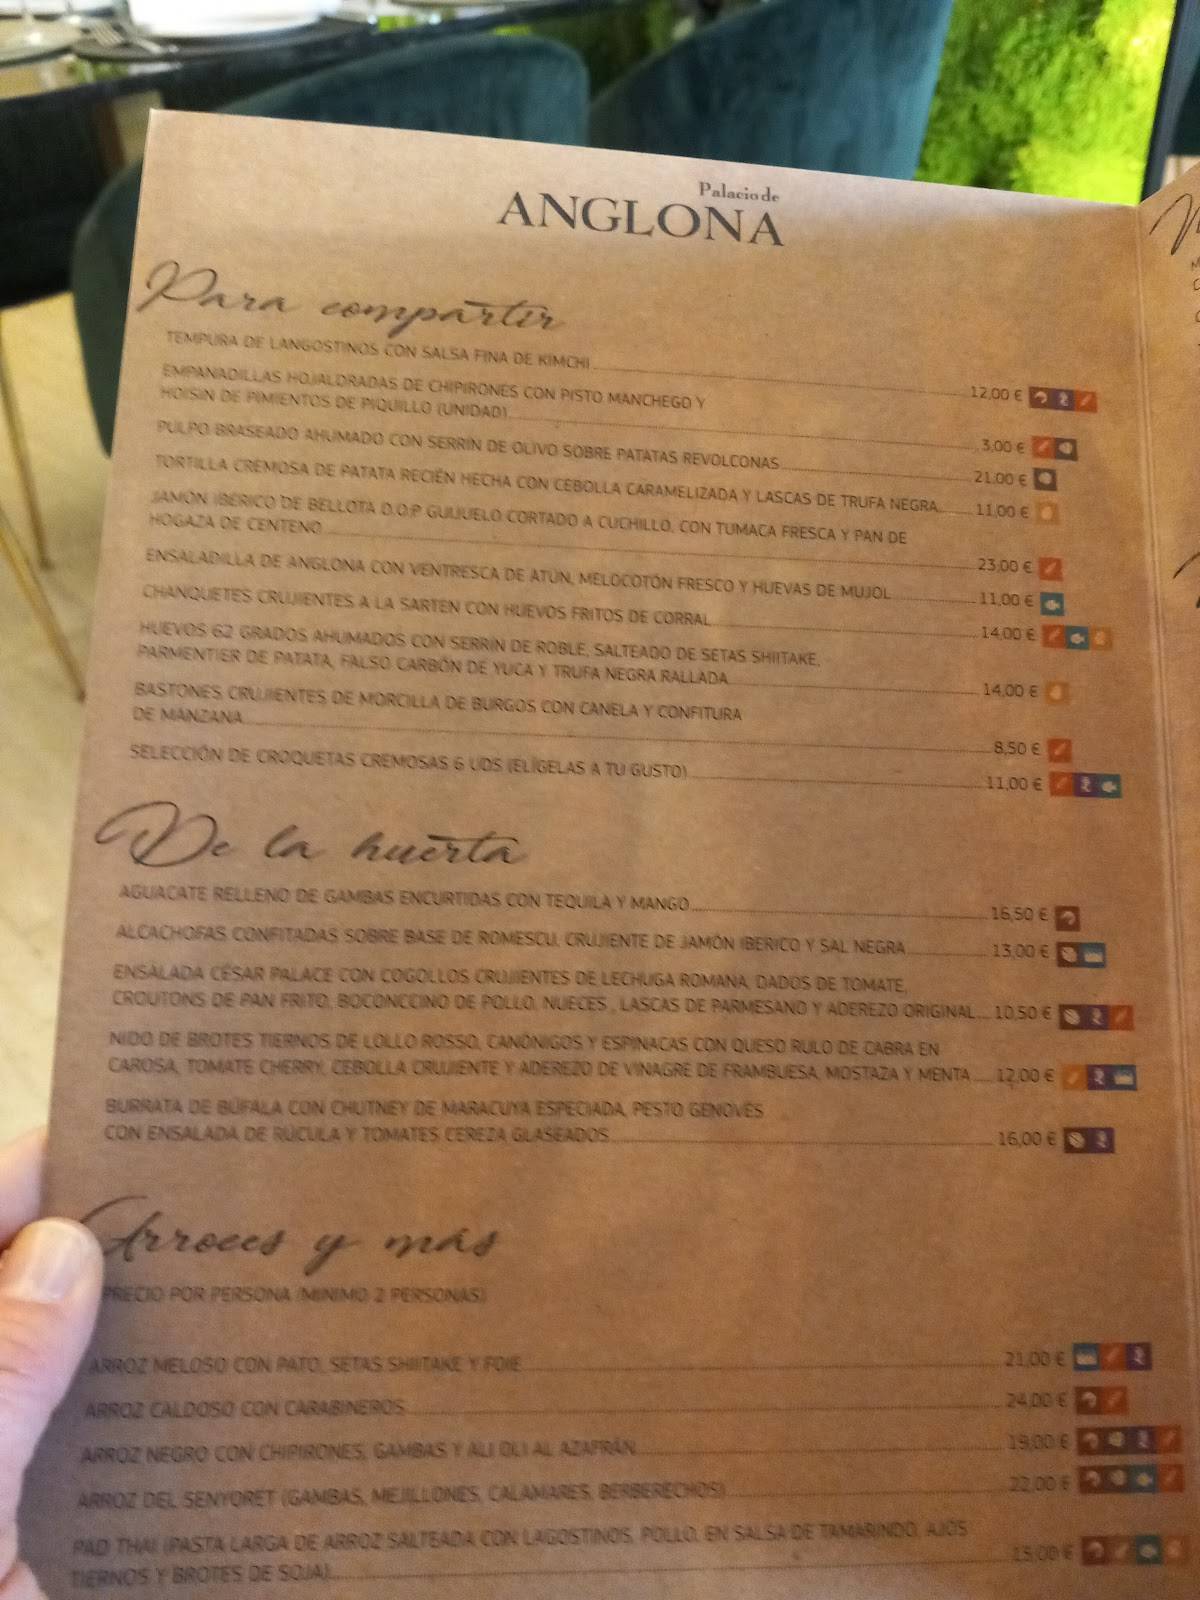 Palacio de
ANGLONA
Para compartir
TEMPURA DE LANGOSTINOS CON SALSA FINA DE KIMCHI 12,00 €
EMPANADILLAS HOJALDRADAS DE CHIPIRONES CON PISTO MANCHEGO Y
HOISIN DE PIMIENTOS DE PIQUILLO (UNIDAD) 3,00 €
PULPO BRASEADO AHUMADO CON SERRÍN DE OLIVO SOBRE PATATAS REVOLCONAS 21,00 €
TORTILLA CREMOSA DE PATATA RECIÉN HECHA CON CEBOLLA CARAMELIZADA Y LASCAS DE TRUFA NEGRA 11,00 €
JAMÓN IBÉRICO DE BELLOTA D.O.P GUIJUELO CORTADO A CUCHILLO, CON TUMACA FRESCA Y PAN DE
HOGAZA DE CENTENO 23,00 €
ENSALADILLA DE ANGLONA CON VENTRESCA DE ATÚN, MELOCOTÓN FRESCO Y HUEVAS DE MUJOL 11,00 €
CHANQUETES CRUJIENTES A LA SARTEN CON HUEVOS FRITOS DE CORRAL 14,00 €
HUEVOS 62 GRADOS AHUMADOS CON SERRÍN DE ROBLE, SALTEADO DE SETAS SHIITAKE,
PARMENTIER DE PATATA, FALSO CARBÓN DE YUCA Y TRUFA NEGRA RALLADA 14,00 €
BASTONES CRUJIENTES DE MORCILLA DE BURGOS CON CANELA Y CONFITURA
DE MANZANA 8,50 €
SELECCIÓN DE CROQUETAS CREMOSAS 6 UDS (ELÍGELAS A TU GUSTO) 11,00 €
De la huerta
AGUACATE RELLENO DE GAMBAS ENCURTIDAS CON TEQUILA Y MANGO 16,50 €
ALCACHOFAS CONFITADAS SOBRE BASE DE ROMESCU, CRUJIENTE DE JAMÓN IBERICO Y SAL NEGRA 13,00 €
ENSALADA CÉSAR PALACE CON COGOLLOS CRUJIENTES DE LECHUGA ROMANA, DADOS DE TOMATE,
CROUTONS DE PAN FRITO, BOCONCCINO DE POLLO, NUECES , LASCAS DE PARMESANO Y ADEREZO ORIGINAL 10,50 €
NIDO DE BROTES TIERNOS DE LOLLO ROSSO, CANÓNIGOS Y ESPINACAS CON QUESO RULO DE CABRA EN
CAROSA, TOMATE CHERRY, CEBOLLA CRUJIENTE Y ADEREZO DE VINAGRE DE FRAMBUESA, MOSTAZA Y MENTA 12,00 €
BURRATA DE BÚFALA CON CHUTNEY DE MARACUYA ESPECIADA, PESTO GENOVÉS
CON ENSALADA DE RÚCULA Y TOMATES CEREZA GLASEADOS 16,00 €
Arroces y más
PRECIO POR PERSONA (MÍNIMO 2 PERSONAS)
ARROZ MELOSO CON PATO, SETAS SHIITAKE Y FOIE 21,00 €
ARROZ CALDOSO CON CARABINEROS 24,00 €
ARROZ NEGRO CON CHIPIRONES, GAMBAS Y ALI OLI AL AZAFRÁN 19,00 €
ARROZ DEL SENYORET (GAMBAS, MEJILLONES, CALAMARES, BERBERECHOS) 22,00 €
PAD THAI (PASTA LARGA DE ARROZ SALTEADA CON LAGOSTINOS, POLLO, EN SALSA DE TAMARINDO, AJOS
TIERNOS Y BROTES DE SOJA) 15,00 €